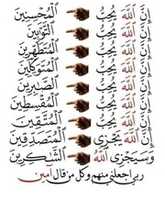 إِنَّ اللَّهَ يُحِبُّ الْمُحْسِنِينَ
إِنَّ اللَّهَ يُحِبُّ التَّوَّابِينَ
إِنَّ اللَّهَ يُحِبُّ الْمُتَطَهِّرِينَ
إِنَّ اللَّهَ يُحِبُّ الْمُتَوَكِّلِينَ
إِنَّ اللَّهَ يُحِبُّ الصَّٰبِرِينَ
إِنَّ اللَّهَ يُحِبُّ الْمُقْسِطِينَ
إِنَّ اللَّهَ يُحِبُّ الْمُتَّقِينَ
إِنَّ اللَّهَ يَجْزِي الْمُتَصَدِّقِينَ
وَسَيَجْزِي اللَّهُ الشَّٰكِرِينَ
ربي اجعلني منهم وكل من قال امين